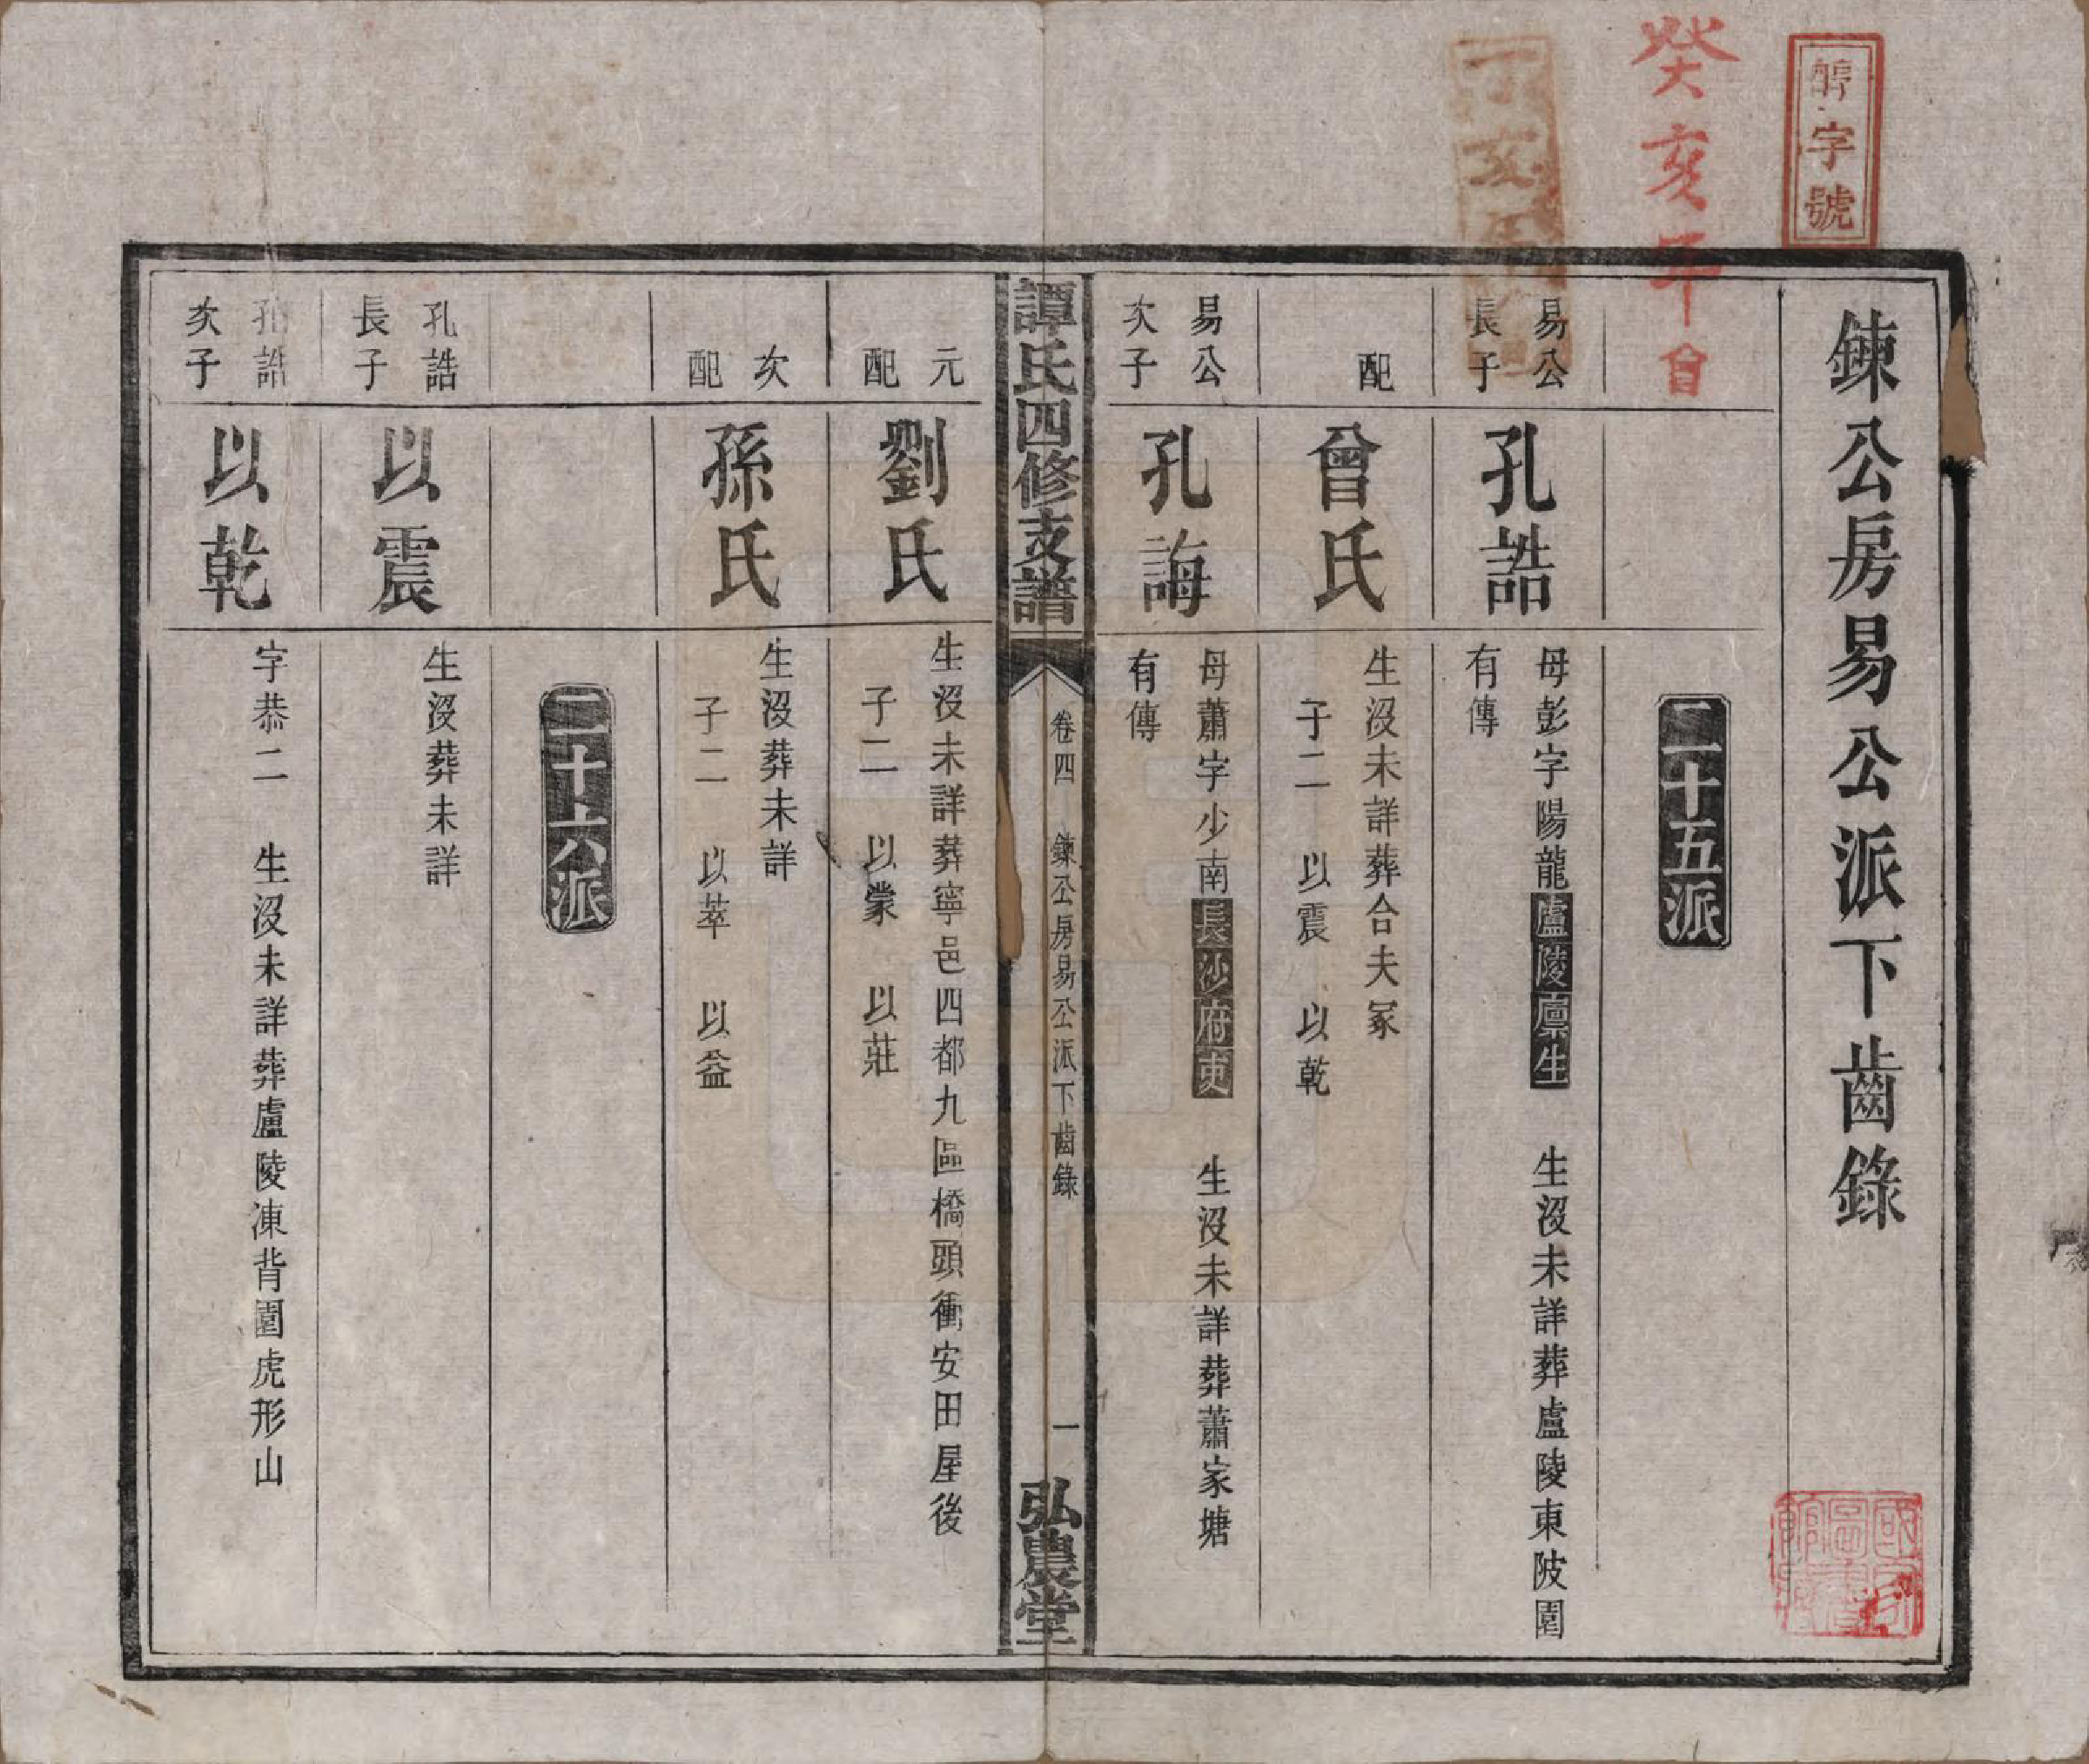 字號
癸亥年會
丁亥
鍊公房易公派下齒錄
二十五派
易公
長子
孔誥
母彭字陽龍盧陵廩生 生沒未詳葬盧陵東陂園
有傳
配
曾氏
生沒未詳葬合夫冢
子二 以震 以乾
易公
次子
孔誨
母蕭字少南長沙府吏 生沒未詳葬蕭家塘
有傳
譚氏四修支譜
卷四 鍊公房易公派下齒錄
一
弘農堂
元
配
劉氏
生沒未詳葬寧邑四都九區橋頭衝安田屋後
子二 以蒙 以莊
次
配
孫氏
生沒葬未詳
子二 以萃 以益
二十六派
孔誥
長子
以震
生沒葬未詳
孔誥
次子
以乾
字恭二 生沒未詳葬盧陵凍背園虎形山